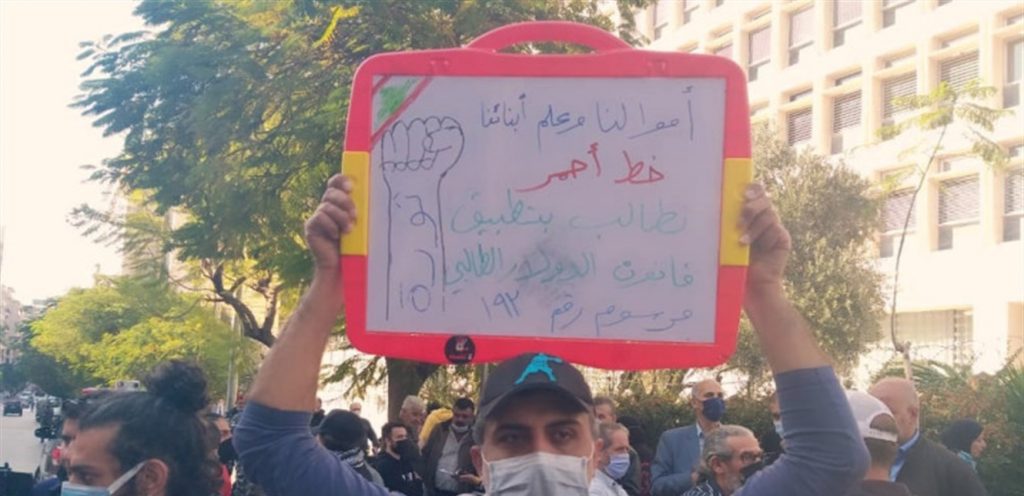 أموالنا وعلم أبنائنا
خط أحمر
نطالب بتطبيق
قانون الدولار الطالبي
مرسوم رقم ١٩٢